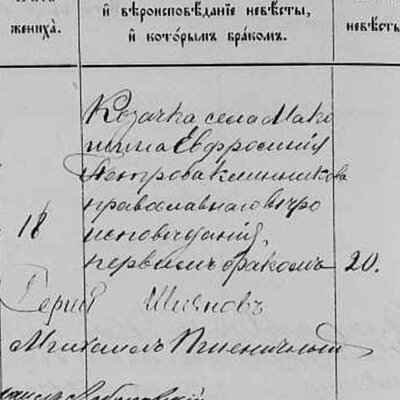 жениха.
и вѣроисповѣданіе невѣсты,
и которымъ бракомъ.
невѣсты
Козачка села Мако
шина Евфросинія
Петрова Клинникова
православнаго вѣро
18
исповѣданія,
первымъ бракомъ 20.
Михаилъ Пшеничный